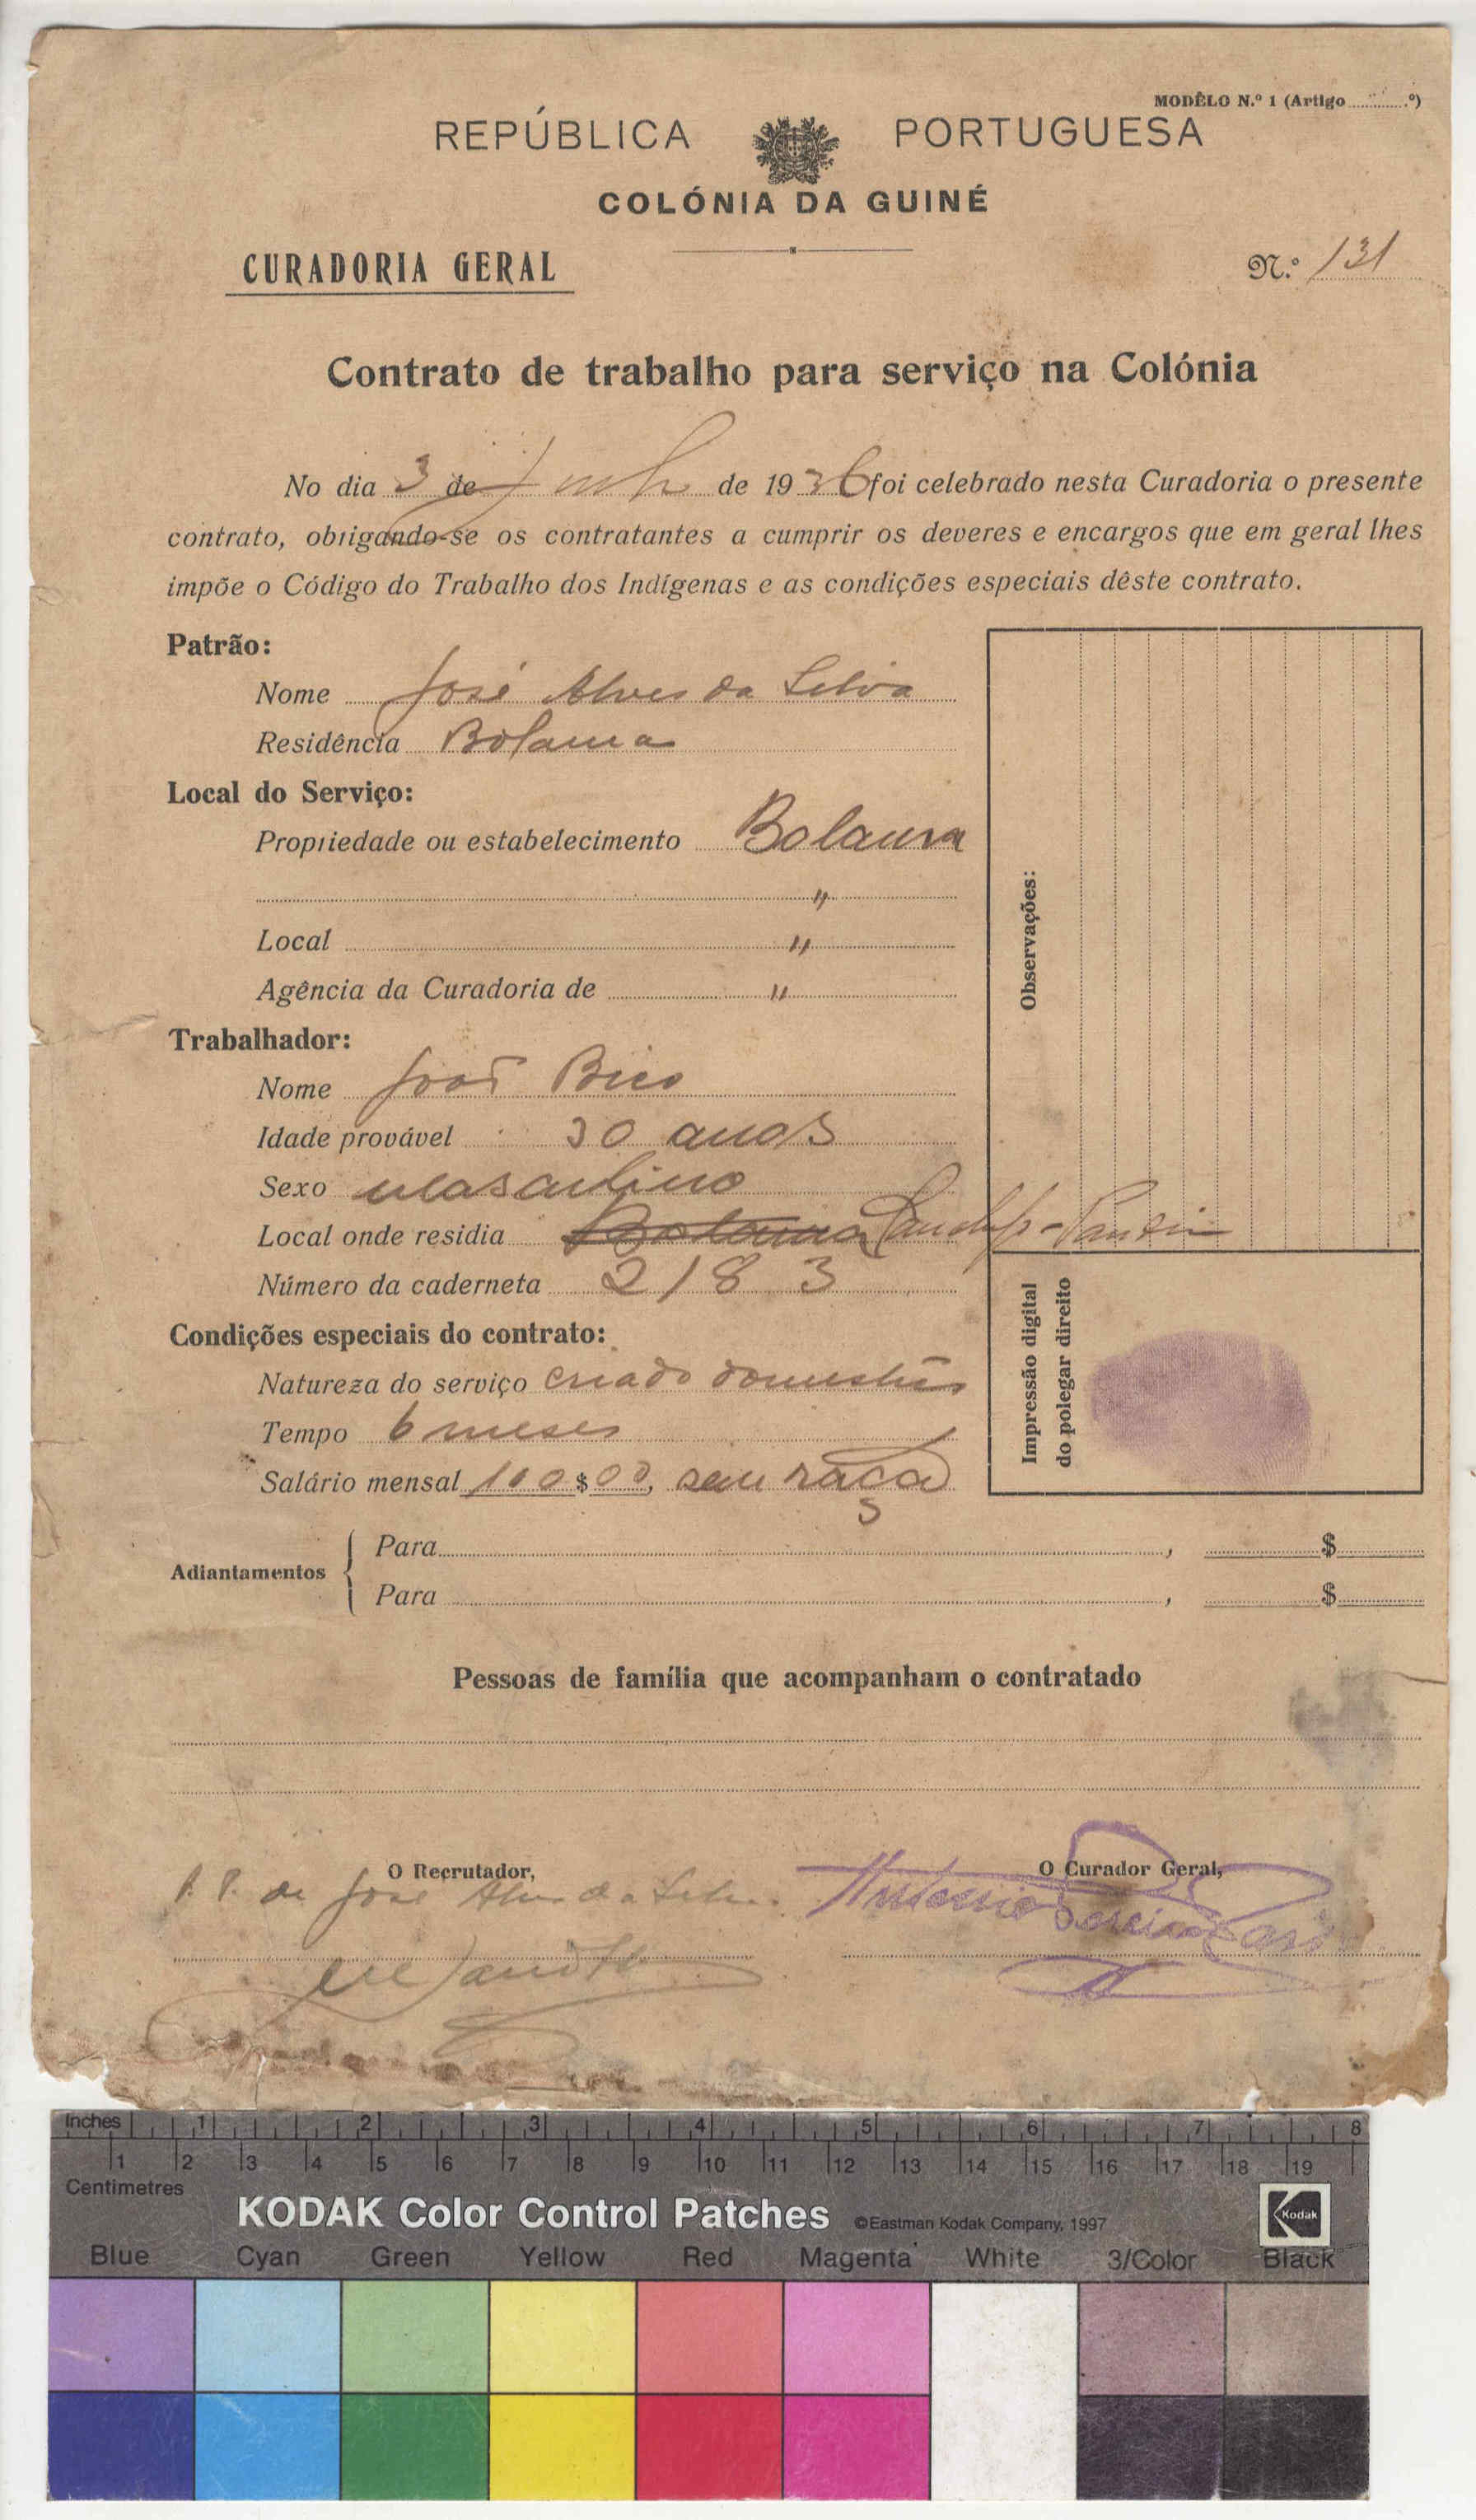 MODÊLO N.º 1 (Artigo ........º)
REPÚBLICA PORTUGUESA
COLÓNIA DA GUINÉ
CURADORIA GERAL
N.º 131
Contrato de trabalho para serviço na Colónia
No dia 3 de de 1936 foi celebrado nesta Curadoria o presente
contrato, obrigando-se os contratantes a cumprir os deveres e encargos que em geral lhes
impõe o Código do Trabalho dos Indígenas e as condições especiais dêste contrato.
Patrão:
Nome José Alves da Silva
Residência Bolama
Local do Serviço:
Propriedade ou estabelecimento Bolama
"
Local "
Agência da Curadoria de "
Trabalhador:
Nome João Bico
Idade provável 30 anos
Sexo masculino
Local onde residia Bolama
Número da caderneta 2183
Condições especiais do contrato:
Natureza do serviço criado domestico
Tempo 6 meses
Salário mensal 100$00, sem raça
Observações:
Impressão digital
do polegar direito
Adiantamentos
Para , $
Para , $
Pessoas de família que acompanham o contratado
O Recrutador,
P. P. de José Alves da Silva
O Curador Geral,
Antonio Pereira
Inches 1 2 3 4 5 6 7 8
1 2 3 4 5 6 7 8 9 10 11 12 13 14 15 16 17 18 19
Centimetres
KODAK Color Control Patches ©Eastman Kodak Company, 1997 Kodak
Blue Cyan Green Yellow Red Magenta White 3/Color Black